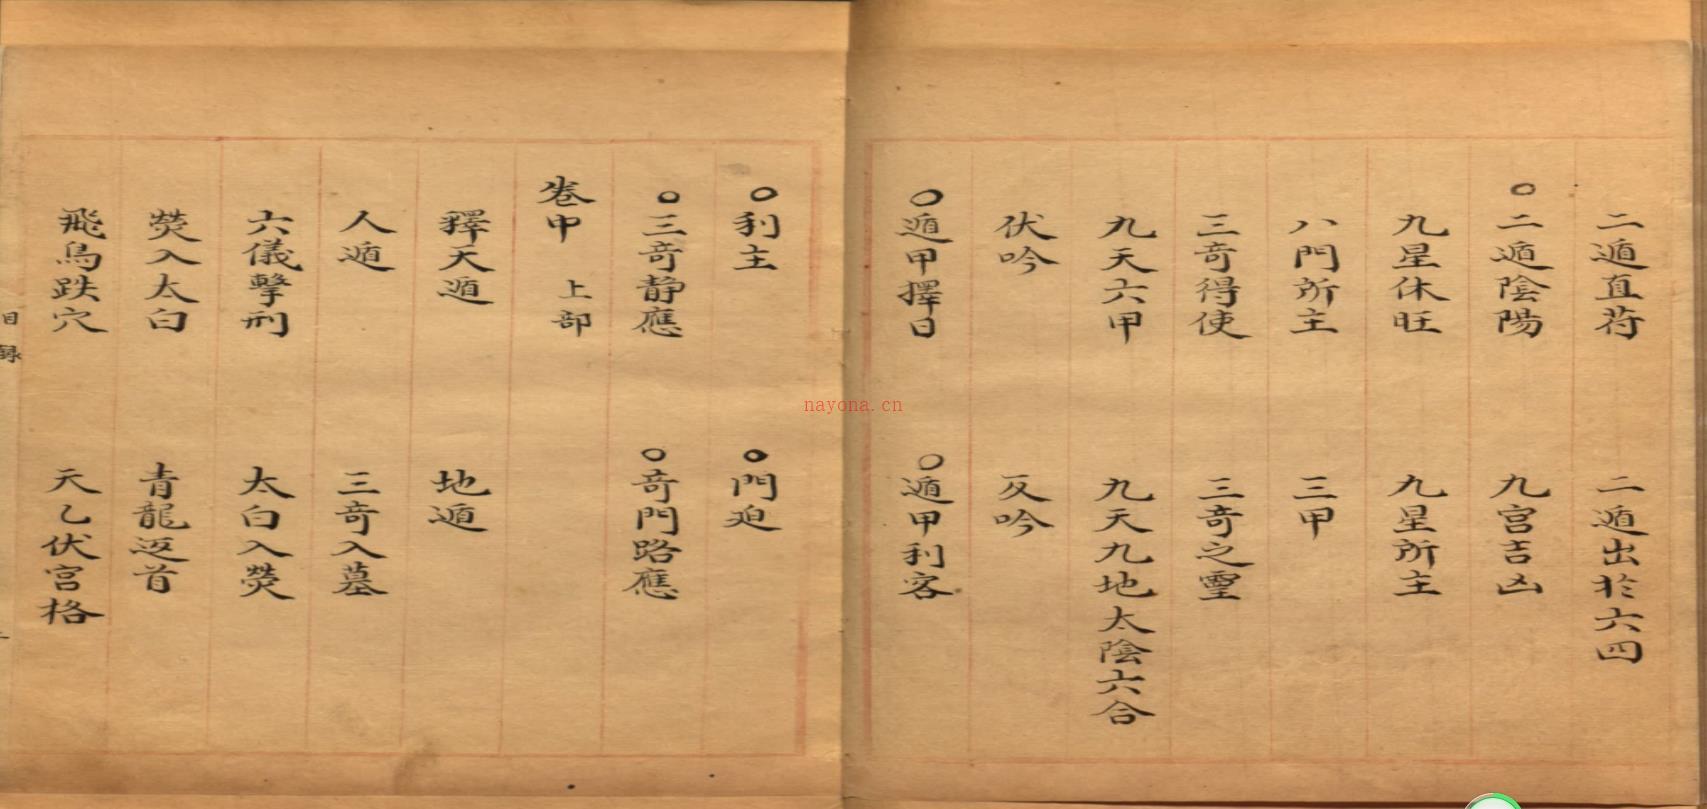 二遁直苻　二遁出於六四
○二遁陰陽　九宮吉凶
九星休旺　九星所主
八門所主　三甲
三奇得使　三奇之靈
九天六甲　九天九地太陰六合
伏吟　反吟
○遁甲擇日　○遁甲利客
○利主　○門迫
○三奇静應　○奇門路應
卷中　上部
釋天遁　地遁
人遁　三奇入墓
六儀擊刑　太白入熒
熒入太白　青龍返首
飛鳥跌穴　天乙伏宮格
目錄
nayona.cn